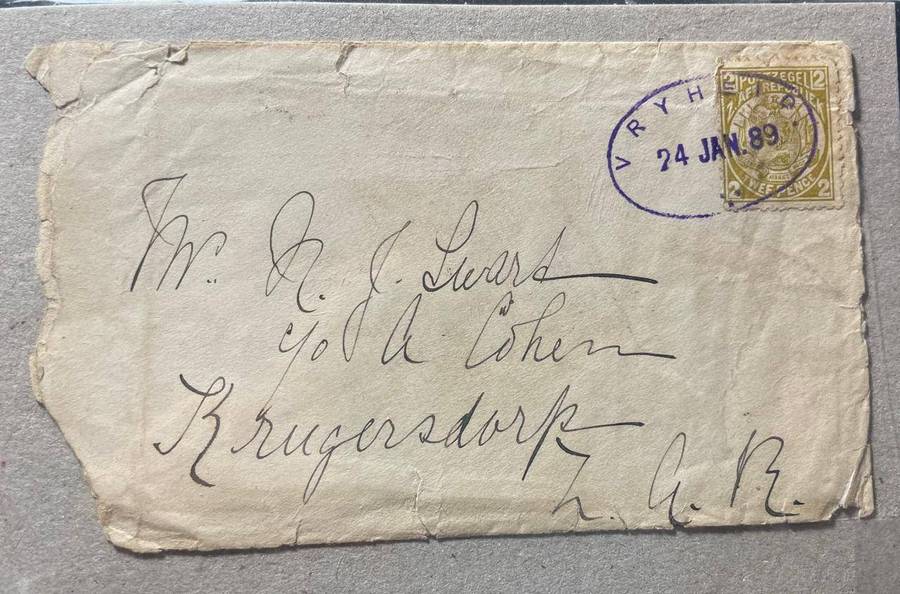 VRYHEID.
24 JAN. 89
2 POSTZEGEL 2
Z. AFR. REPUBLIEK
2 TWEE PENCE 2
Mr. N. J. Swart
c/o A Cohen
Krugersdorp
Z. A. R.